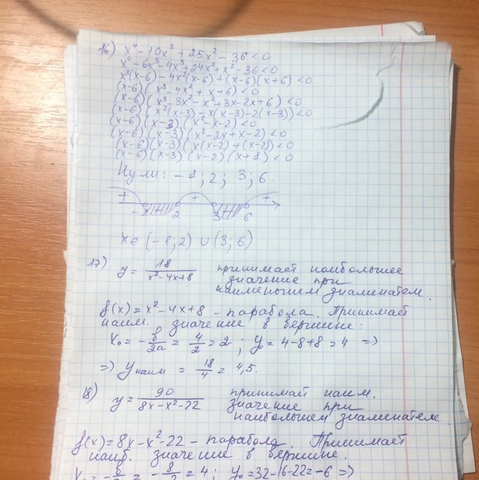 16) x⁴ - 10x³ + 25x² - 36 < 0
x⁴ - 6x³ - 4x³ + 24x² + x² - 36 < 0
x³(x-6) - 4x²(x-6) + (x-6)(x+6) < 0
(x-6)(x³ - 4x² + x + 6) < 0
(x-6)(x³ - 3x² - x² + 3x - 2x + 6) < 0
(x-6)(x²(x-3) - x(x-3) - 2(x-3)) < 0
(x-6)(x-3)(x² - x - 2) < 0
(x-6)(x-3)(x² - 2x + x - 2) < 0
(x-6)(x-3)(x(x-2) + (x-2)) < 0
(x-6)(x-3)(x-2)(x+1) < 0
Нули: -1; 2; 3; 6.
+ - + - +
-1 2 3 6
x∈ (-1; 2) ∪ (3; 6)
17) y = 18/(x² - 4x + 8) принимает наибольшее
значение при
наименьшем знаменател.
f(x) = x² - 4x + 8 - парабола. Принимает
наим. значение в вершине:
x₀ = -b/2a = 4/2 = 2; y₀ = 4 - 8 + 8 = 4 =>
=> yнаим = 18/4 = 4,5.
18) y = 90/(8x - x² - 22) принимай наим.
значение при
наибольшем знаменателе
f(x) = 8x - x² - 22 - парабола. Принимает
наиб. значение в вершине.
x₀ = -b/ = -8/-2 = 4; y₀ = 32 - 16 - 22 = -6 =>